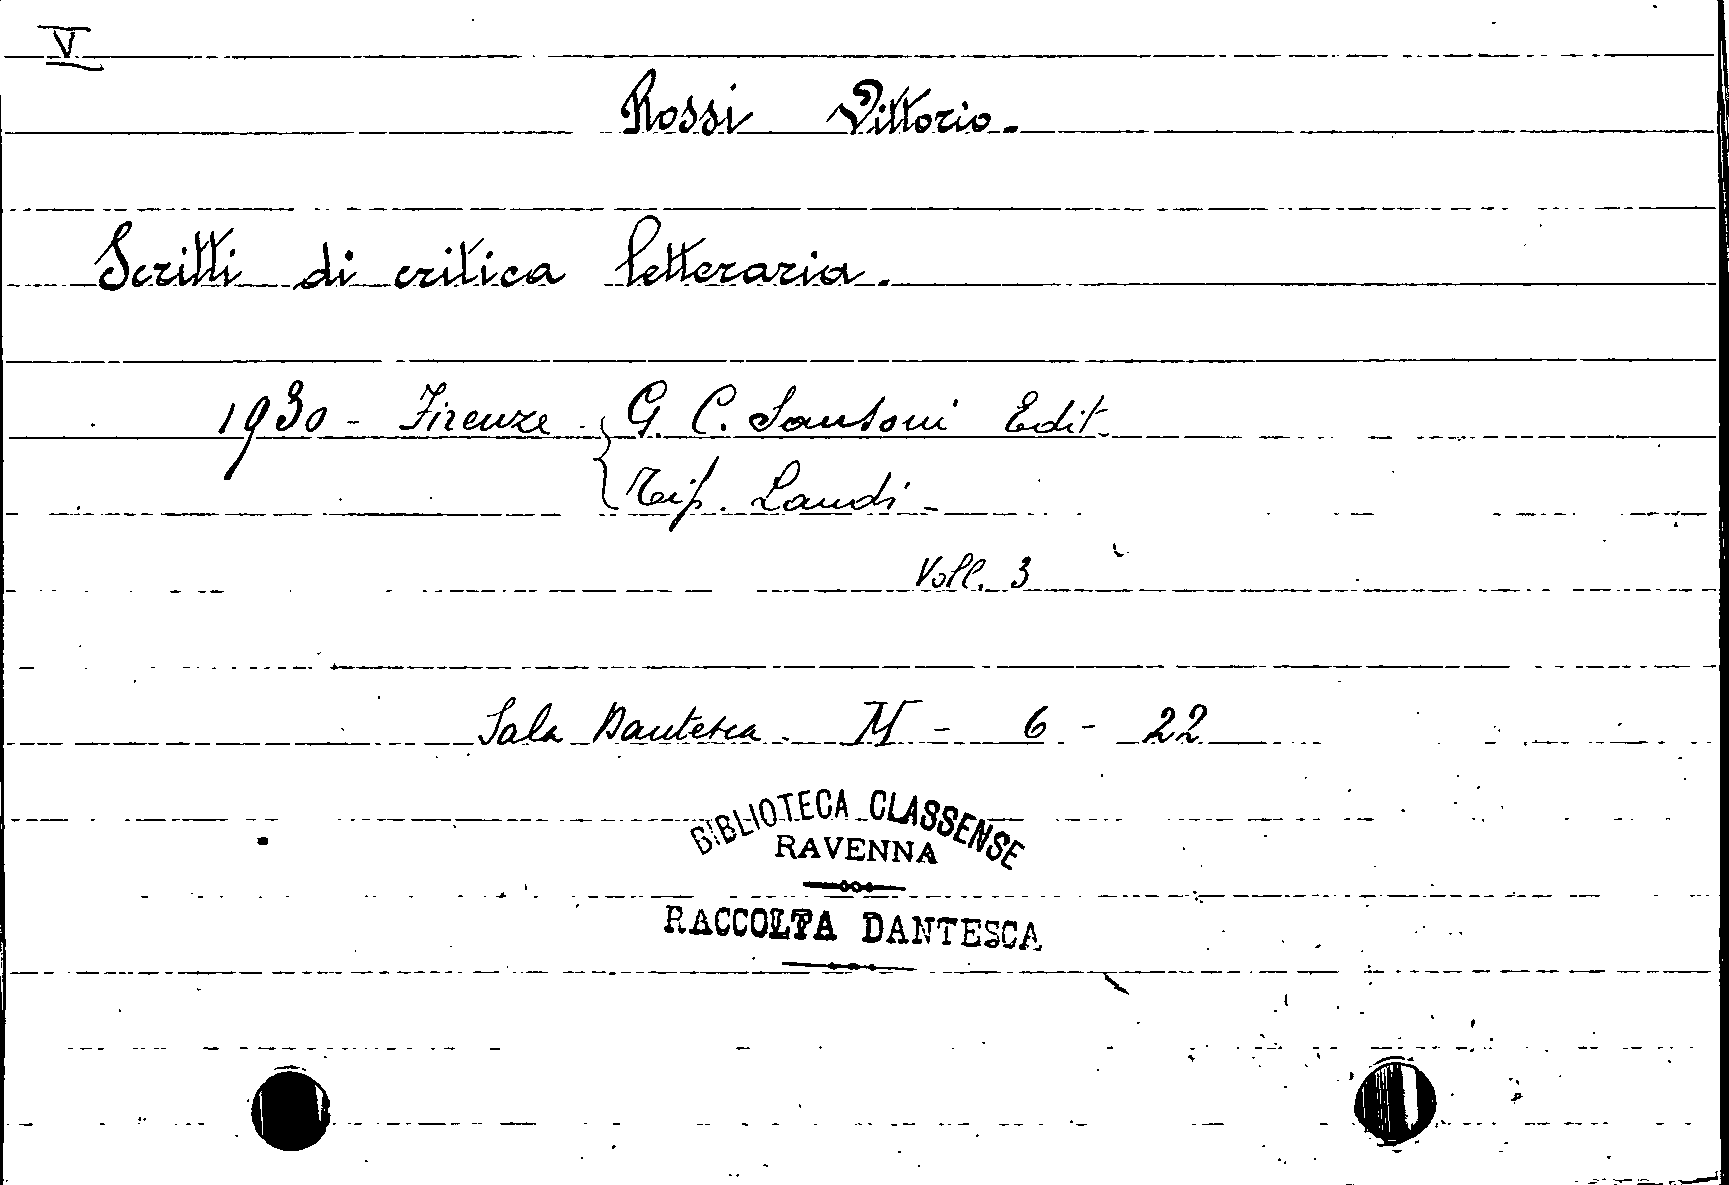 V
Rossi Vittorio.
Scritti di critica letteraria.
1930 - Firenze - G. C. Sansoni Edit.
Tip. Landi -
Voll. 3
Sala Dantesca. M - 6 - 22
BIBLIOTECA CLASSENSE
RAVENNA
RACCOLTA DANTESCA